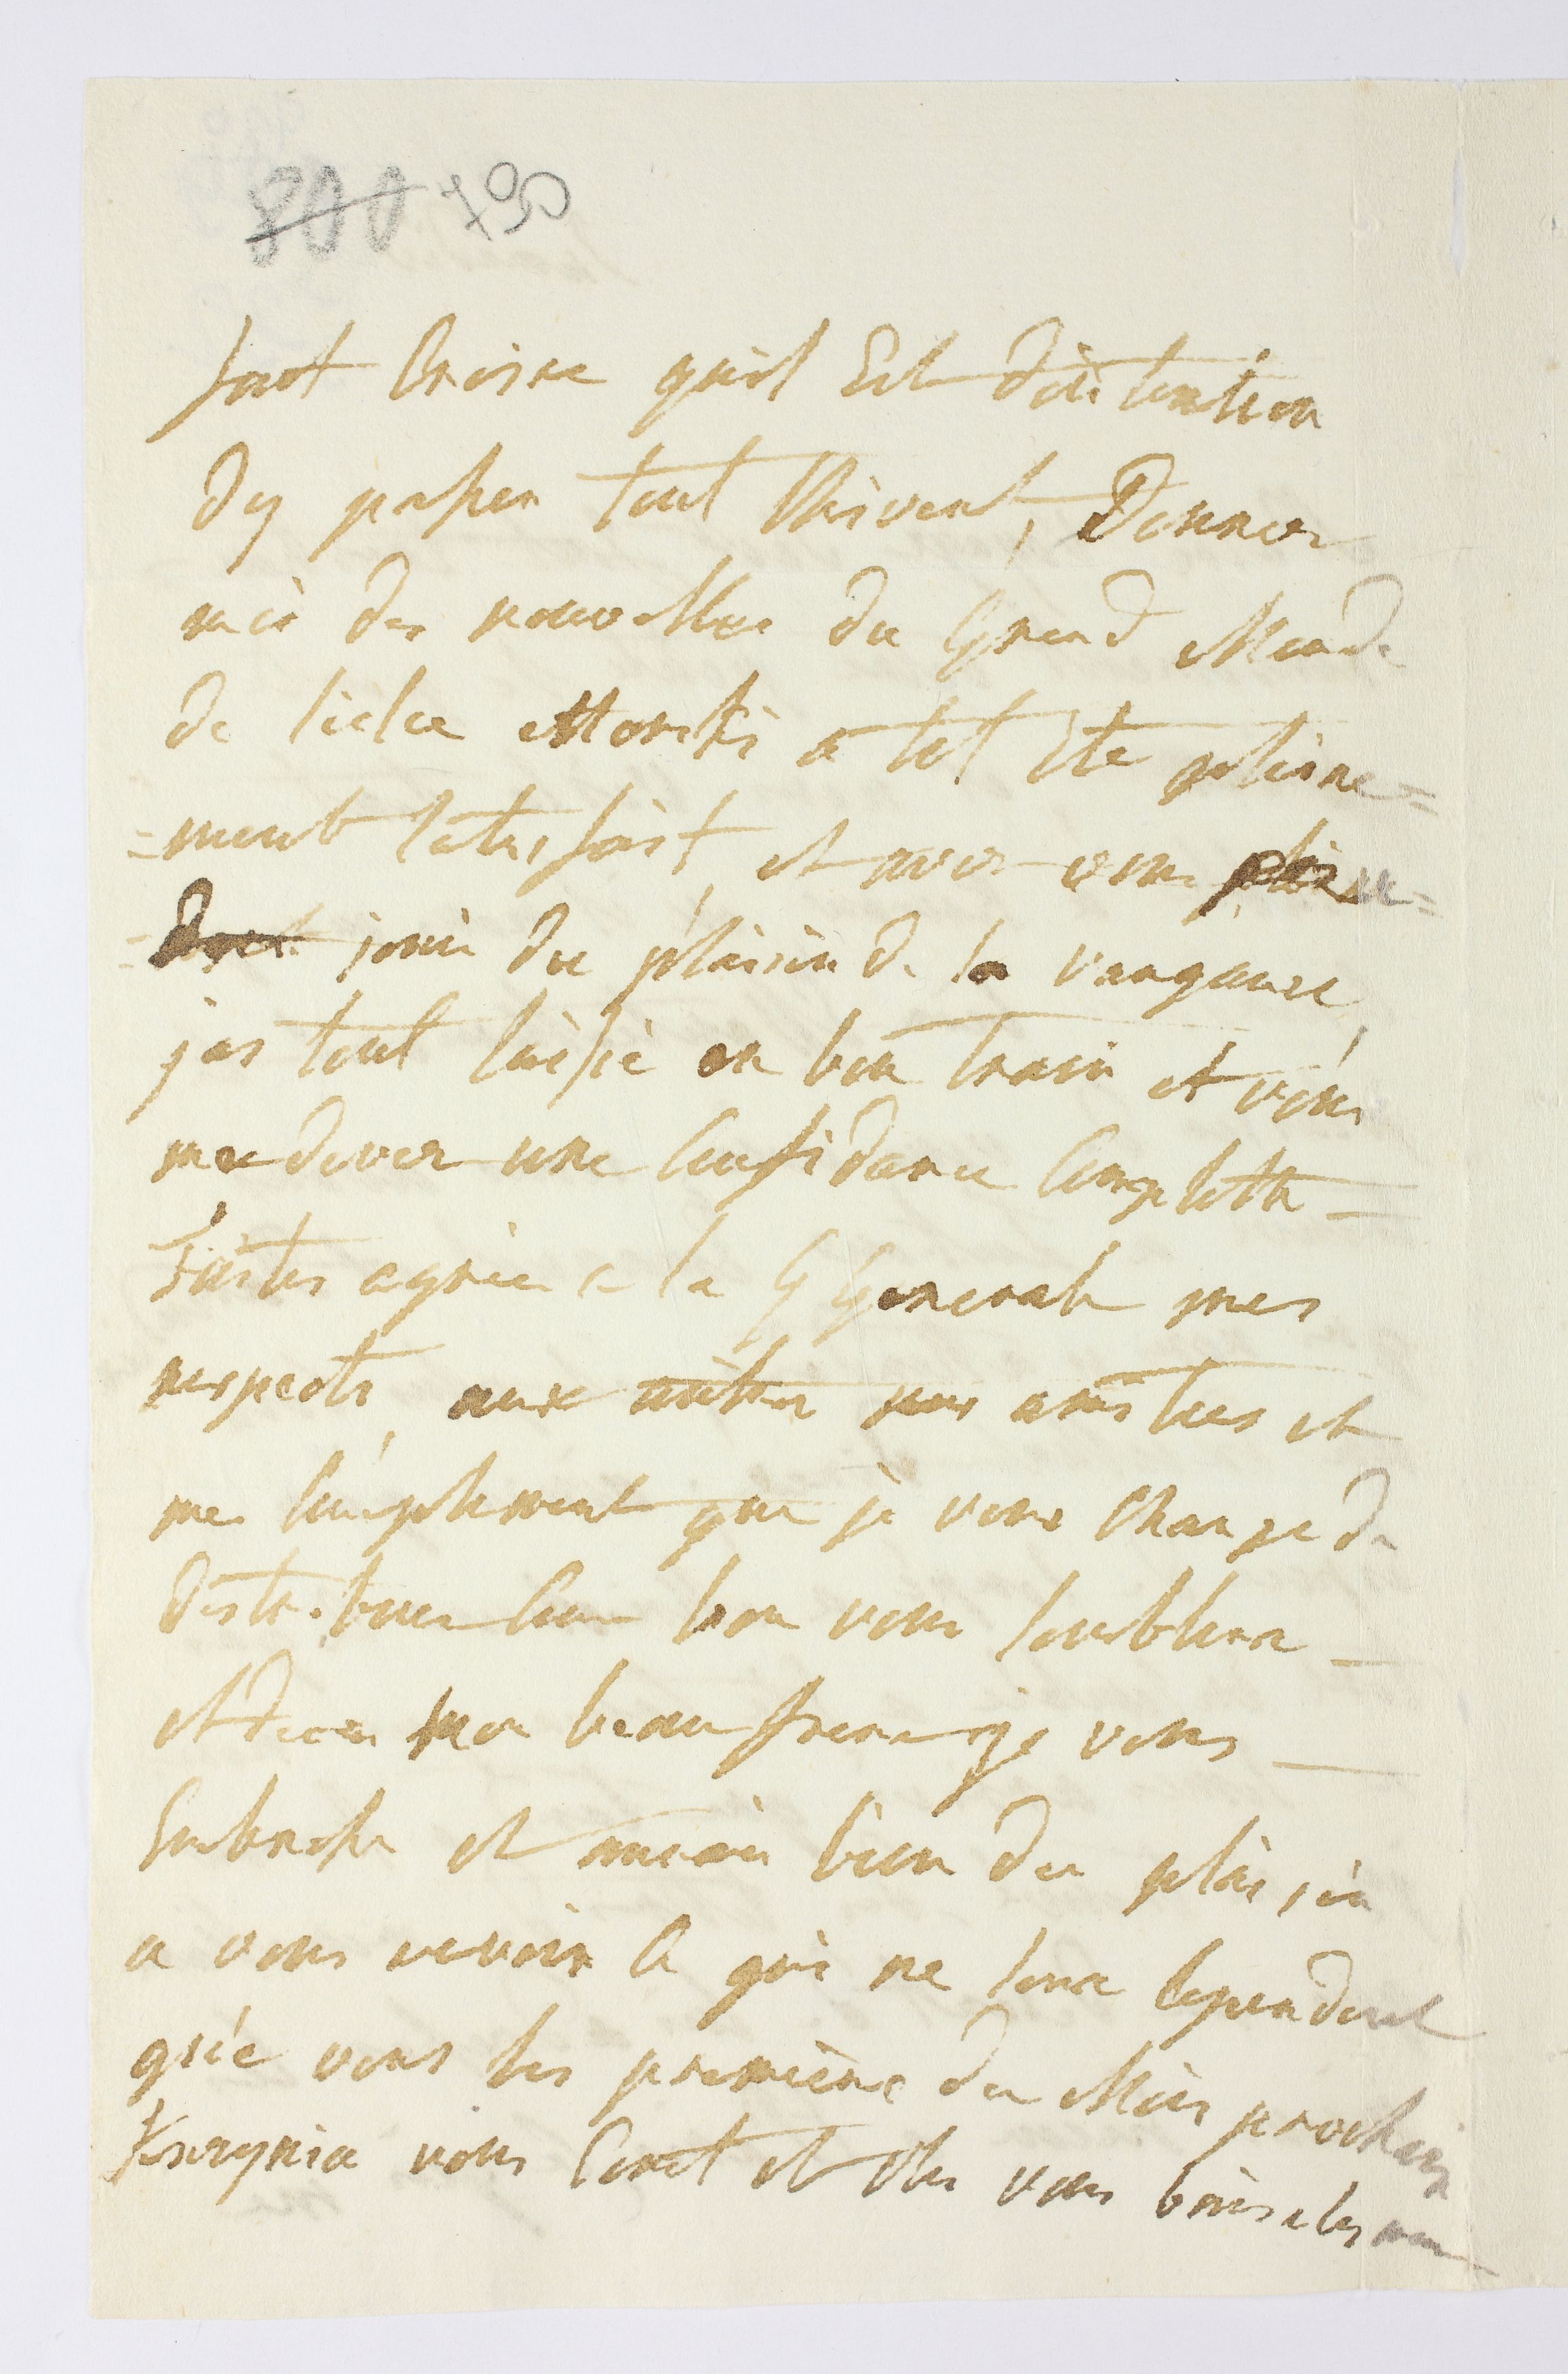 800 790
font Croire quil Est dintention
dy passer tout lhivert, Donner
moi des nouvelles du Grand Monde
de Morski a tel Ete pleine=
=ment satisfait, et aver vous plaine=
=ment joui du plaisir de la vangence
jai tout laissé en bon train et vous
me dever une Confidance Complette _
Faites agreer a la G Generale mes
respects, aux autres mes amities et
mes Compliment que je vous Charge de
distribuer Come bon vous semblera _
Adieu mon beau frere je vous _
Embrasse et aurai bien du plaisir
a vous revoir Ce qui ne sera cependent
que vers les premiers du Mois prochain
vous ecrit et Elle vous baise les